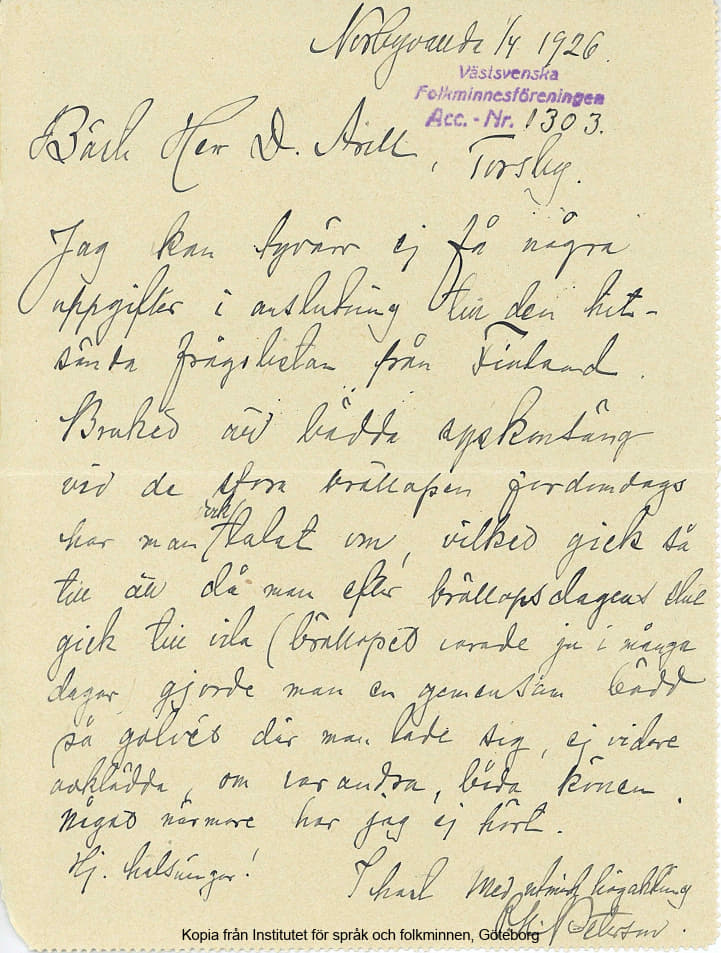 Norbyvalla 1/4 1926.
Västsvenska
Folkminnesföreningen
Acc. - Nr. 1303.
Bäste Herr D. Arill, Torsby.
Jag kan tyvärr ej få några
uppgifter i anslutning till den hit-
sända frågelistan från Finland.
Bruket att bädda syskonsäng
vid de stora bröllopen fordomdags
har man talat om, vilket gick så
till att då man efter bröllopsdagens slut
gick till vila (bröllopet varade ju i många
dagar) gjorde man en gemensam bädd
på golvet där man lade sig, ej vidare
avklädda, om varandra, båda könen.
Något närmare har jag ej hört.
Hj. hälsningar!
Med utmärkt högaktning
Petersson.
Kopia från Institutet för språk och folkminnen, Göteborg